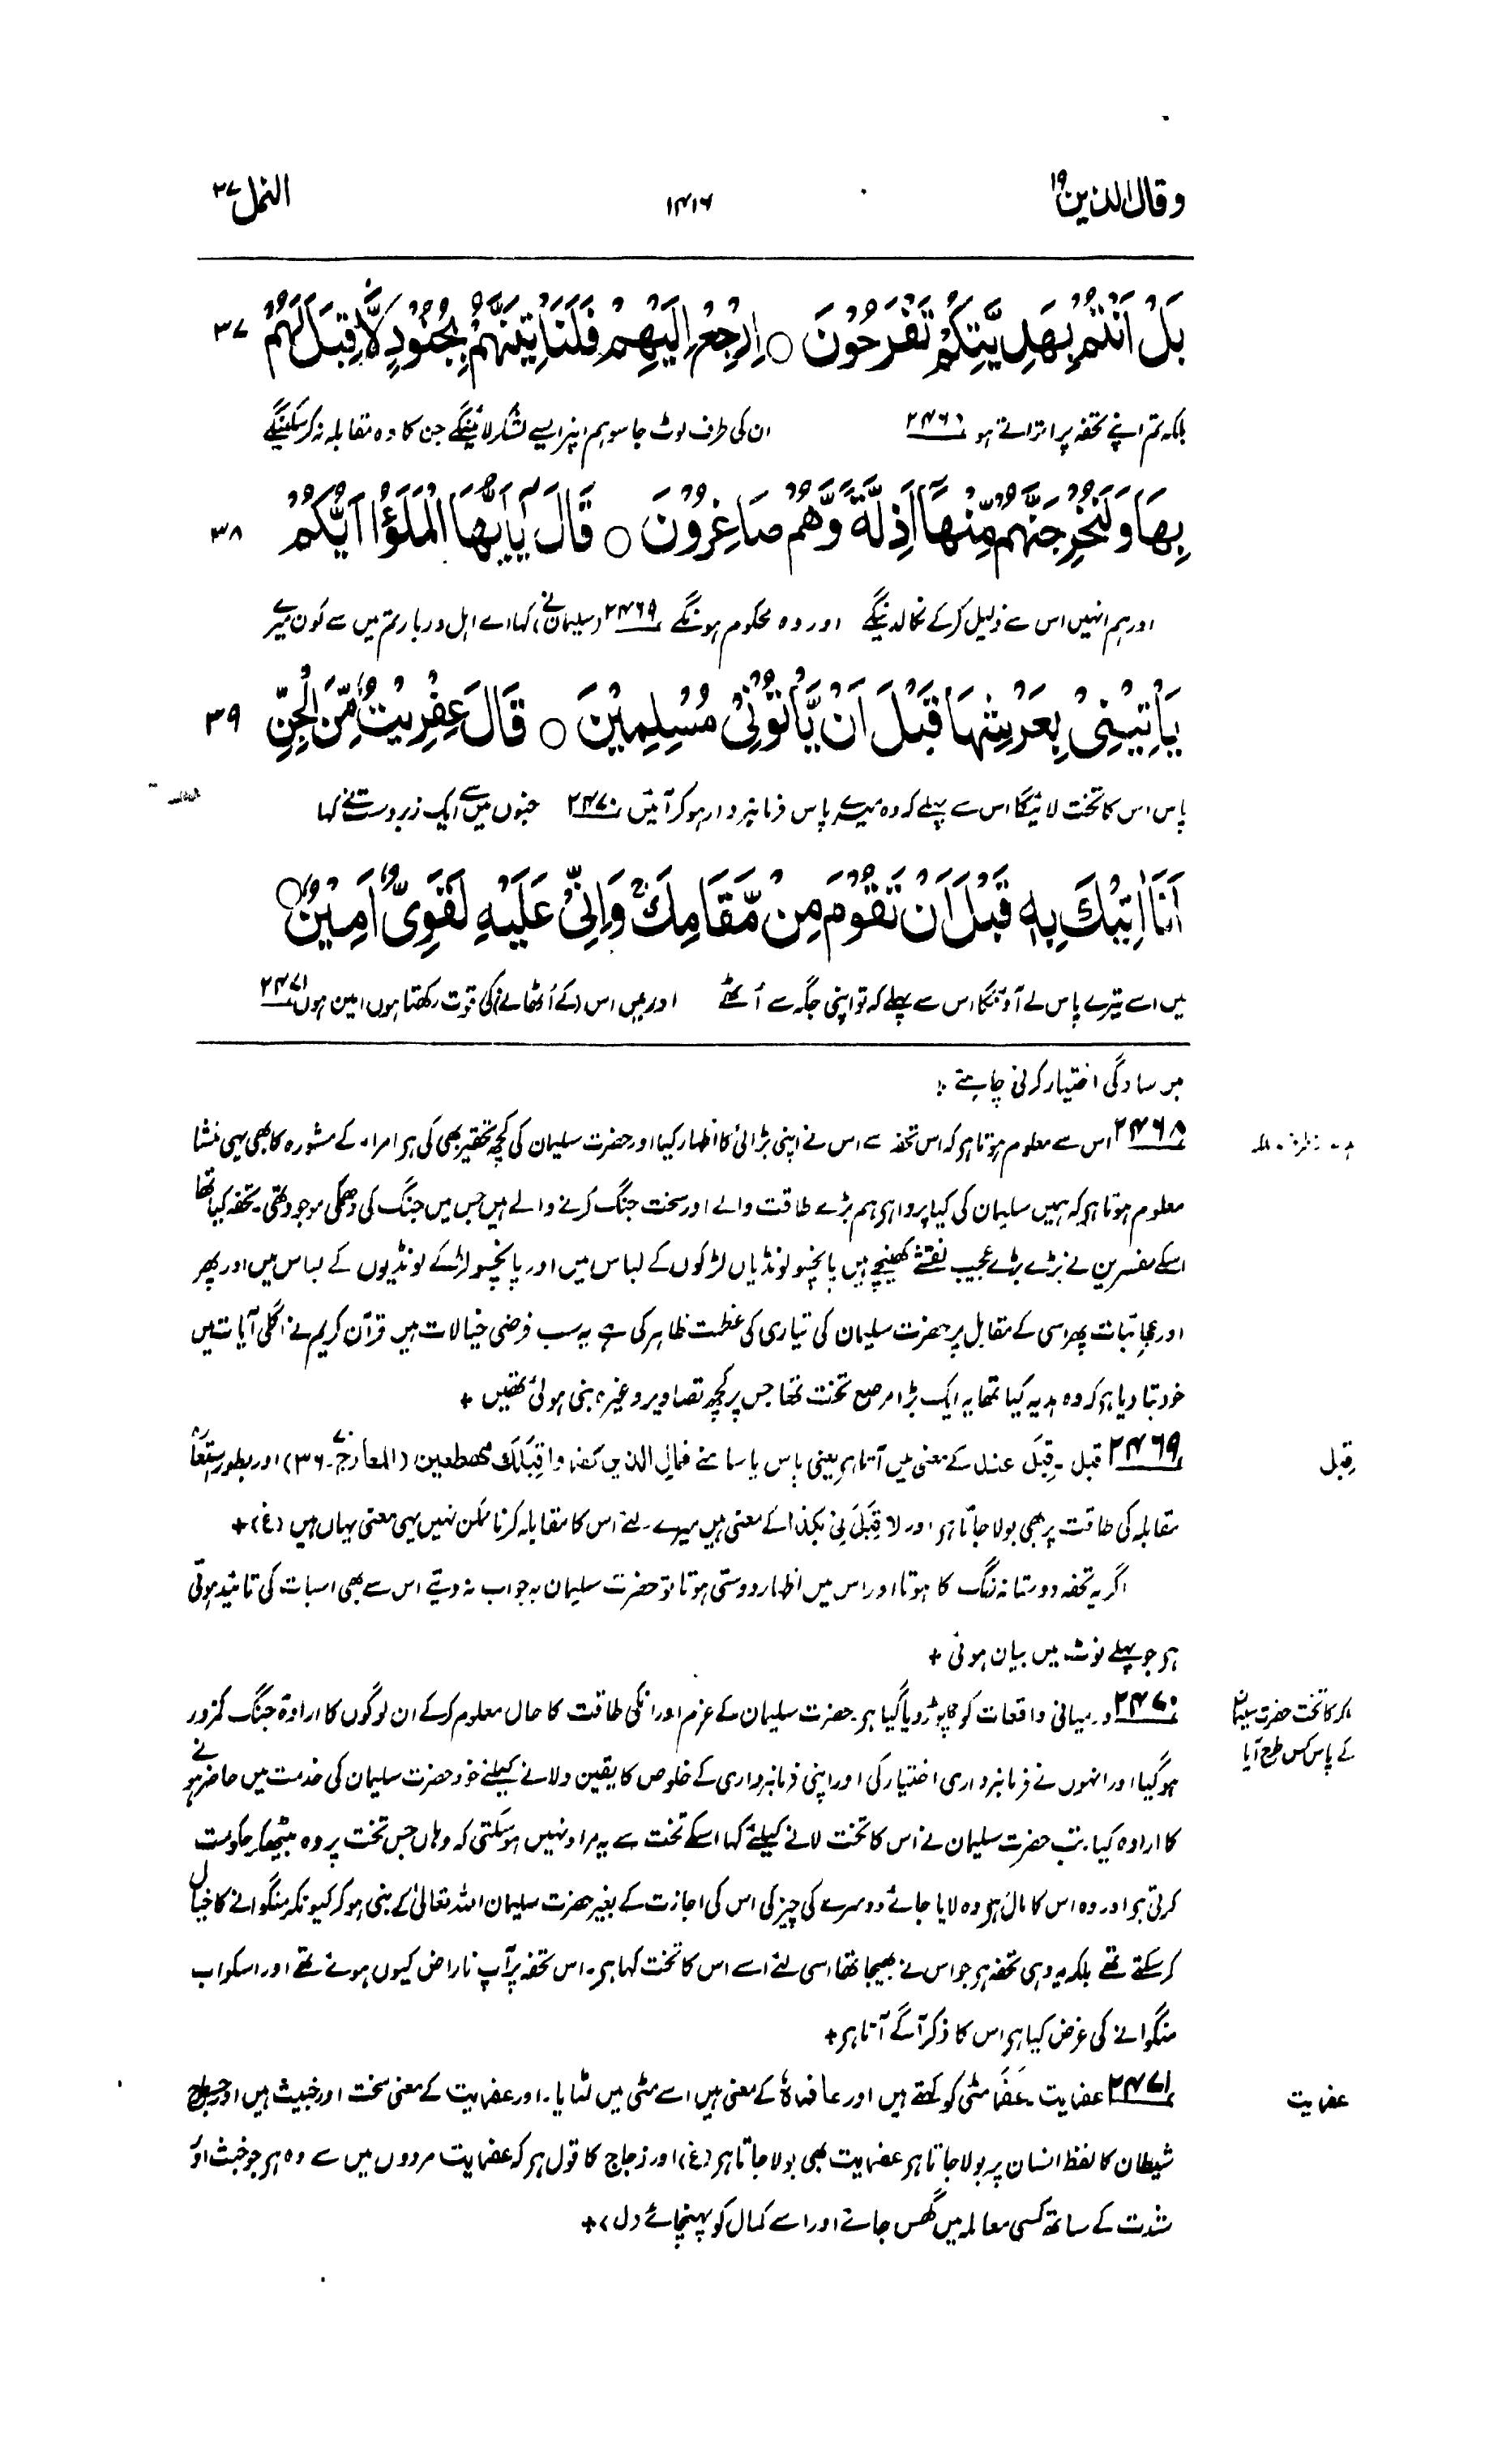 وقال الذین ۱۹ ۱۴۱۶ النمل ۲۷
بَلْ اَنْتُمْ بِهَدِيَّتِكُمْ تَفْرَحُوْنَ ○ اِرْجِعْ اِلَيْهِمْ فَلَنَاْتِيَنَّهُمْ بِجُنُوْدٍ لَّا قِبَلَ لَهُمْ ۳۷
بلکہ تم اپنے تحفہ پر اتراتے ہو ۲۴۶۸ ان کی طرف لوٹ جا سو ہم انپر ایسے لشکر لائینگے جن کا وہ مقابلہ نہ کر سکینگے
بِهَا وَلَنُخْرِجَنَّهُمْ مِّنْهَآ اَذِلَّةً وَّهُمْ صَاغِرُوْنَ ○ قَالَ يٰٓاَيُّهَا الْمَلَؤُا اَيُّكُمْ ۳۸
اور ہم انہیں اس سے ذلیل کر کے نکالدینگے اور وہ محکوم ہونگے ۲۴۶۹ (سلیمان نے) کہا اے اہل دربار تم میں سے کون میرے
يَاْتِيْنِيْ بِعَرْشِهَا قَبْلَ اَنْ يَّاْتُوْنِيْ مُسْلِمِيْنَ ○ قَالَ عِفْرِيْتٌ مِّنَ الْجِنِّ ۳۹
پاس اس کا تخت لائیگا اس سے پہلے کہ وہ میرے پاس فرمانبردار ہو کر آئیں ۲۴۷۰ جنوں میں سے ایک زبردست نے کہا
اَنَا اٰتِيْكَ بِهٖ قَبْلَ اَنْ تَقُوْمَ مِنْ مَّقَامِكَ ۚ وَاِنِّيْ عَلَيْهِ لَقَوِيٌّ اَمِيْنٌ ○
میں اسے تیرے پاس لے آؤنگا اس سے پہلے کہ تو اپنی جگہ سے اُٹھے اور میں اس (کے اُٹھانے) کی قوت رکھتا ہوں امین ہوں ۲۴۷۱
سادگی اختیار کرنی چاہیئے :
۲۴۶۸ اس سے معلوم ہوتا ہو کہ اس تحفہ سے اس نے اپنی بڑائی کا اظہار کیا اور حضرت سلیمان کی کچھ تحقیر بھی کی ہو امراء کے مشورہ کا بھی یہی منشا
معلوم ہوتا ہو کہ ہمیں سلیمان کی کیا پروا ہو ہم بڑے طاقت والے اور سخت جنگ کرنے والے ہیں جس میں جنگ کی دھمکی موجود تھی۔ تحفہ کیا تھا
اسکے مفسرین نے بڑے بڑے عجیب نقشے کھینچے ہیں پانچسو لونڈیاں لڑکوں کے لباس میں اور پانچسو لڑکے لونڈیوں کے لباس میں اور پھر
اور عجائبات پھر اسی کے مقابل پر حضرت سلیمان کی تیاری کی عظمت ظاہر کی ہے یہ سب فرضی خیالات ہیں قرآن کریم نے اگلی آیات میں
خود بتا دیا ہو کہ وہ ہدیہ کیا تھا یہ ایک بڑا مرصع تخت تھا جس پر کچھ تصاویر وغیرہ بنی ہوئی تھیں +
۲۴۶۹ قبل۔ قِبَل عند کے معنی میں آتا ہو یعنی پاس یا سامنے فمال الذین کفروا قِبَلَكَ مهطعین (المعارج ۷۰۔ ۳۶) اور بطور استعارہ
مقابلہ کی طاقت پر بھی بولا جاتا ہو اور لا قِبَلَ لی بکذا کے معنی ہیں میرے لئے اس کا مقابلہ کرنا ممکن نہیں یہی معنی یہاں ہیں (غ) +
اگر یہ تحفہ دوستانہ رنگ کا ہوتا اور اس میں اظہار دوستی ہوتا تو حضرت سلیمان یہ جواب نہ دیتے اس سے بھی اسبات کی تائید ہوتی
ہو جو پہلے نوٹ میں بیان ہوئی +
۲۴۷۰ درمیانی واقعات کو چھوڑ دیا گیا ہو۔ حضرت سلیمان کے عزم اور انکی طاقت کا حال معلوم کر کے ان لوگوں کا ارادۂ جنگ کمزور
ہو گیا اور انہوں نے فرمانبرداری اختیار کی اور اپنی فرمانبرداری کے خلوص کا یقین دلانے کیلئے خود حضرت سلیمان کی خدمت میں حاضر ہونے
کا ارادہ کیا۔ تب حضرت سلیمان نے اس کا تخت لانے کیلئے کہا اسکے تخت سے یہ مراد نہیں ہو سکتی کہ وہاں جس تخت پر وہ بیٹھکر حکومت
کرتی ہو اور وہ اس کا مال ہو وہ لایا جائے دوسرے کی چیز کی اس کی اجازت کے بغیر حضرت سلیمان اللہ تعالیٰ کے نبی ہو کر کیونکر منگوانے کا خیال
کر سکتے تھے بلکہ یہ وہی تحفہ ہو جو اس نے بھیجا تھا اسی لئے اسے اس کا تخت کہا ہو۔ اس تحفہ پر آپ ناراض کیوں ہوئے تھے اور اسکو اب
منگوانے کی غرض کیا ہو اس کا ذکر آگے آتا ہو +
۲۴۷۱ عفریت۔ عَفَر مٹی کو کہتے ہیں اور عافرہٗ کے معنی ہیں اسے مٹی میں لٹایا۔ اور عفریت کے معنی سخت اور خبیث ہیں اور جسطرح
شیطان کا لفظ انسان پر بولا جاتا ہو عفریت بھی بولا جاتا ہو (غ) اور زجاج کا قول ہو کہ عفریت مردوں میں سے وہ ہو جو خبث اور
شدت کے ساتھ کسی معاملہ میں گھس جائے اور اسے کمال کو پہنچائے (ل) +
قِبل
ملکہ کا تخت حضرت سلیمان
کے پاس کس طرح آیا
عفریت